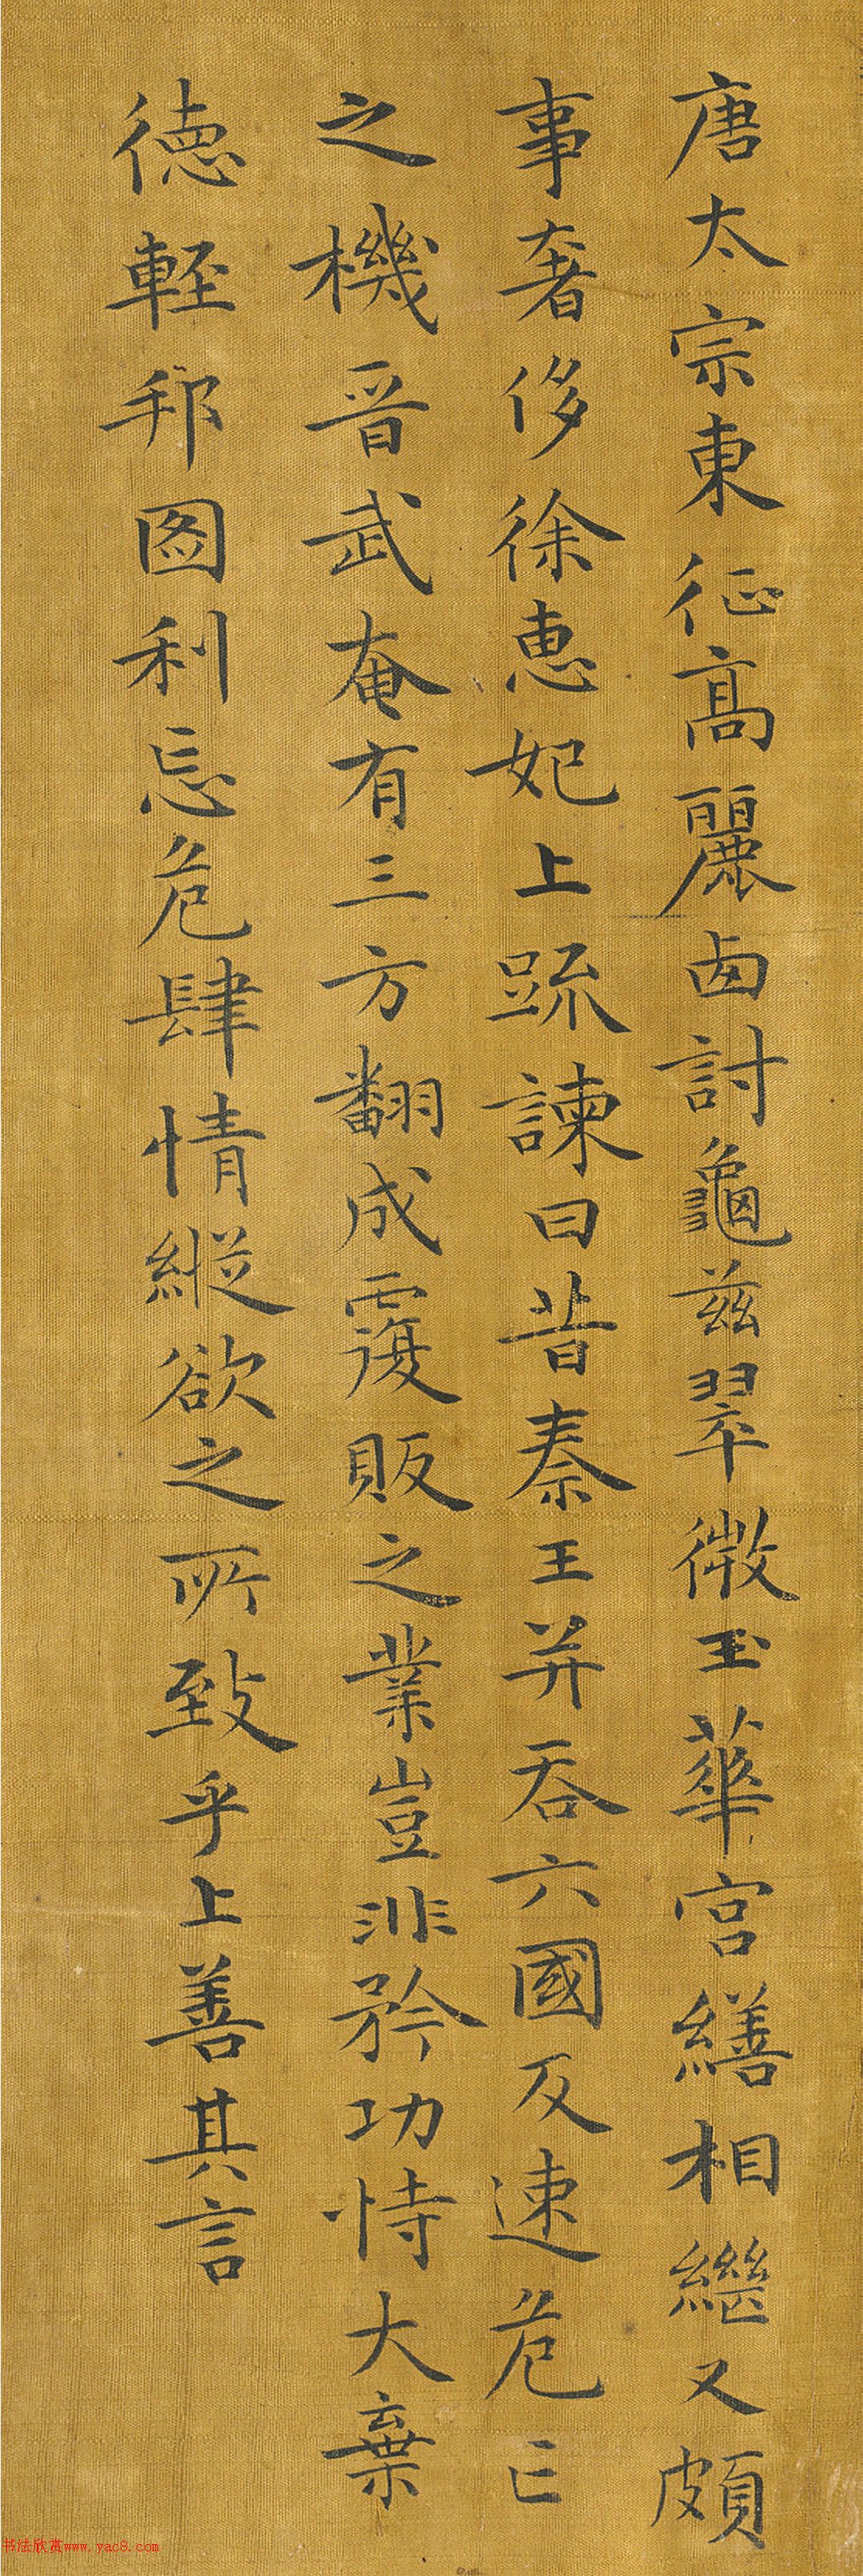 唐太宗東征高麗西討龜茲翠微玉華宮繕相繼又頗
事奢侈徐惠妃上疏諫曰昔秦王并吞六國反速危亡
之機晉武奄有三方翻成覆敗之業豈非矜功恃大棄
德輕邦圖利忘危肆情縱欲之所致乎上善其言
书法欣赏www.yac8.com